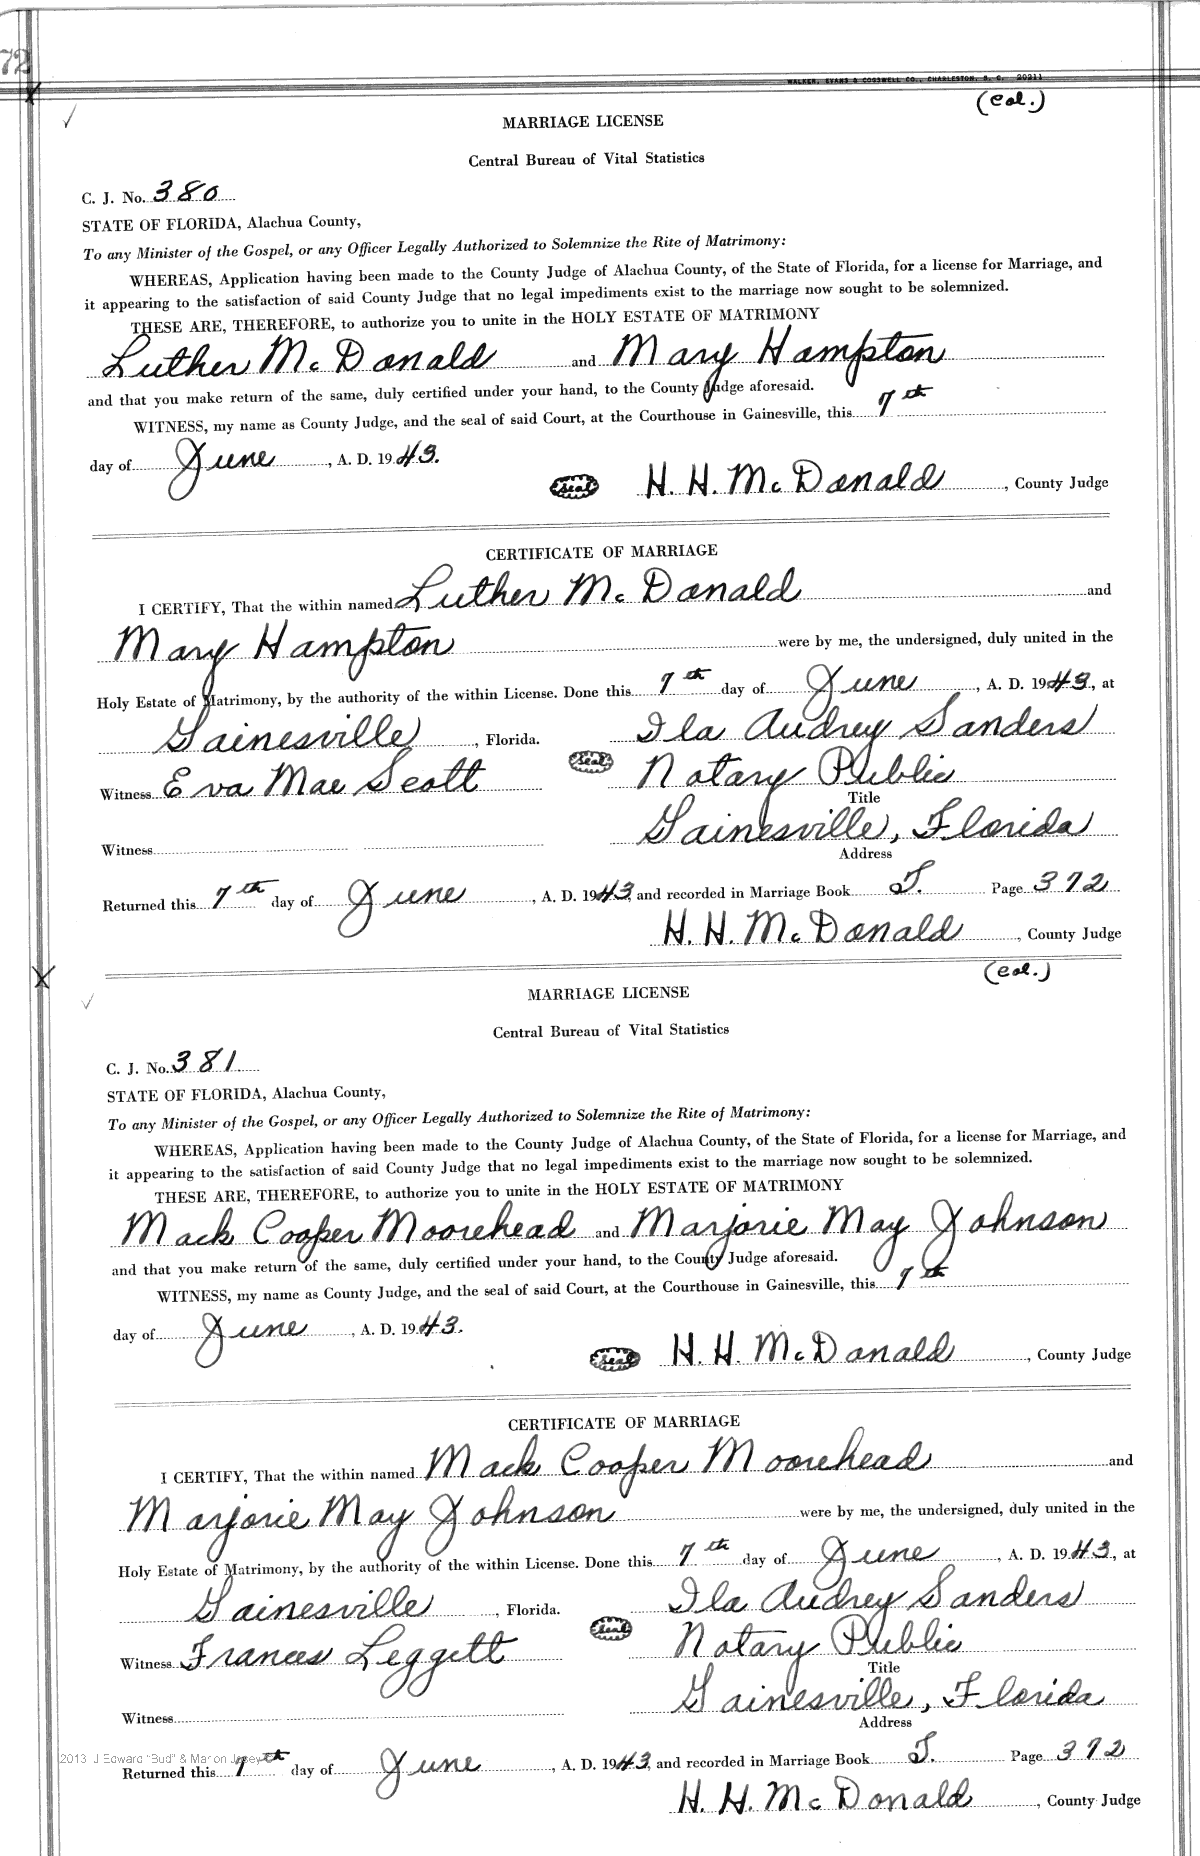 72
WALKER, EVANS & COGSWELL CO., CHARLESTON, S. C. 20211
(Col.)
MARRIAGE LICENSE
Central Bureau of Vital Statistics
C. J. No. 380
STATE OF FLORIDA, Alachua County,
To any Minister of the Gospel, or any Officer Legally Authorized to Solemnize the Rite of Matrimony:
WHEREAS, Application having been made to the County Judge of Alachua County, of the State of Florida, for a license for Marriage, and
it appearing to the satisfaction of said County Judge that no legal impediments exist to the marriage now sought to be solemnized.
THESE ARE, THEREFORE, to authorize you to unite in the HOLY ESTATE OF MATRIMONY
Luther McDonald and Mary Hampton
and that you make return of the same, duly certified under your hand, to the County Judge aforesaid.
WITNESS, my name as County Judge, and the seal of said Court, at the Courthouse in Gainesville, this 7th
day of June, A. D. 1943.
seal H. H. McDonald, County Judge
CERTIFICATE OF MARRIAGE
I CERTIFY, That the within named Luther McDonald and
Mary Hampton were by me, the undersigned, duly united in the
Holy Estate of Matrimony, by the authority of the within License. Done this 7th day of June, A. D. 1943, at
Gainesville, Florida. Ila Audrey Sanders
Witness Eva Mae Scott seal Notary Public
Title
Gainesville, Florida
Witness Address
Returned this 7th day of June, A. D. 1943, and recorded in Marriage Book T. Page 372
H. H. McDonald, County Judge
(Col.)
MARRIAGE LICENSE
Central Bureau of Vital Statistics
C. J. No. 381
STATE OF FLORIDA, Alachua County,
To any Minister of the Gospel, or any Officer Legally Authorized to Solemnize the Rite of Matrimony:
WHEREAS, Application having been made to the County Judge of Alachua County, of the State of Florida, for a license for Marriage, and
it appearing to the satisfaction of said County Judge that no legal impediments exist to the marriage now sought to be solemnized.
THESE ARE, THEREFORE, to authorize you to unite in the HOLY ESTATE OF MATRIMONY
Mack Cooper Moorehead and Marjorie May Johnson
and that you make return of the same, duly certified under your hand, to the County Judge aforesaid.
WITNESS, my name as County Judge, and the seal of said Court, at the Courthouse in Gainesville, this 7th
day of June, A. D. 1943.
seal H. H. McDonald, County Judge
CERTIFICATE OF MARRIAGE
I CERTIFY, That the within named Mack Cooper Moorehead and
Marjorie May Johnson were by me, the undersigned, duly united in the
Holy Estate of Matrimony, by the authority of the within License. Done this 7th day of June, A. D. 1943, at
Gainesville, Florida. Ila Audrey Sanders
Witness Frances Leggett seal Notary Public
Title
Gainesville, Florida
Witness Address
2013 J Edward "Bud" & Marion
Returned this 7th day of June, A. D. 1943, and recorded in Marriage Book T. Page 372
H. H. McDonald, County Judge